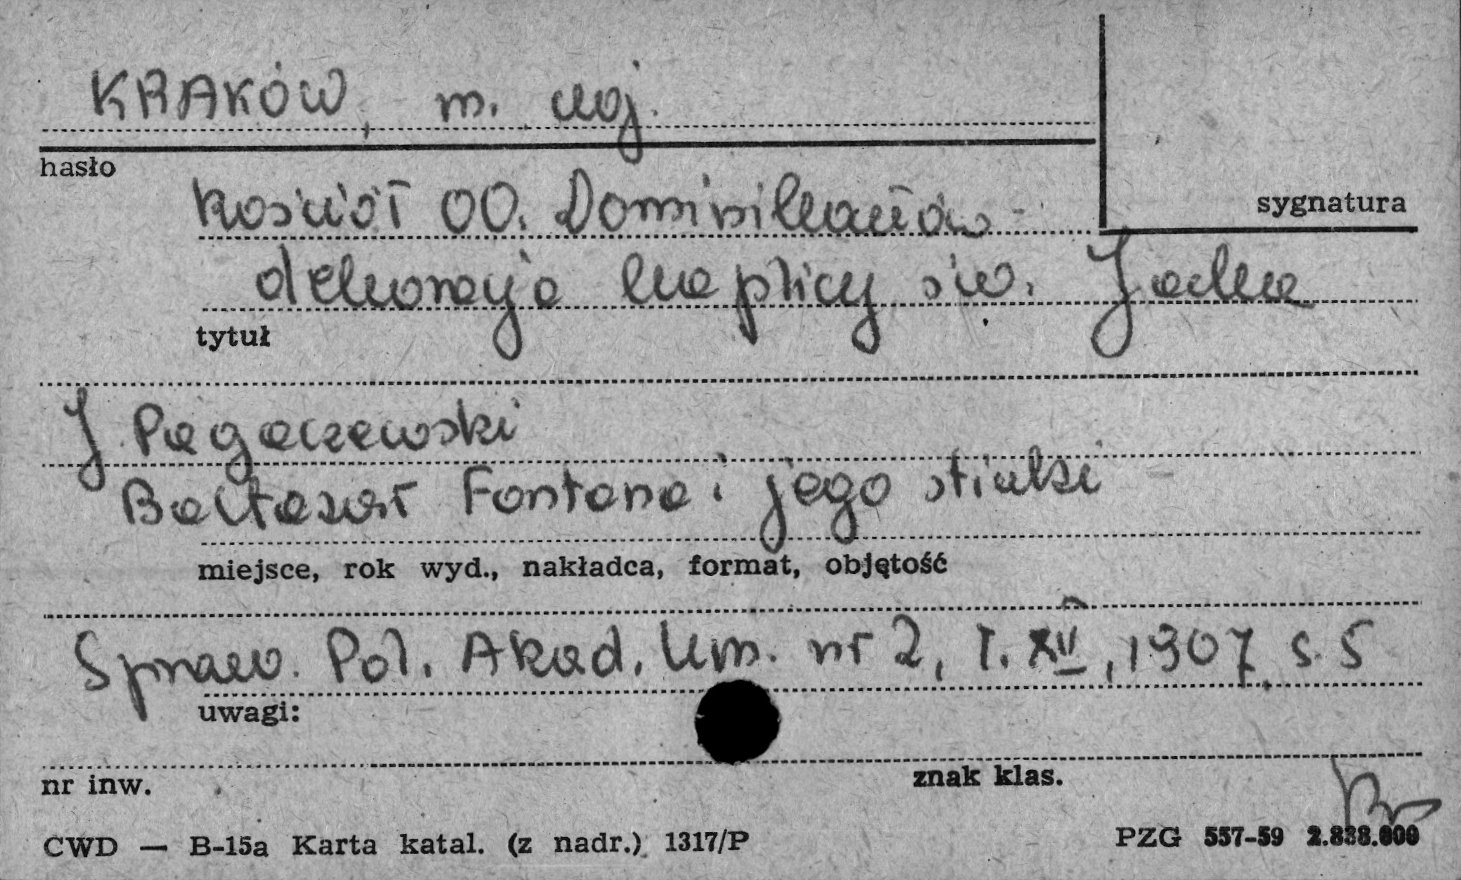 KRAKÓW, m. woj.
hasło
kościół OO. Dominikanów -
sygnatura
dekoracja kaplicy św. Jacka
tytuł
J. Pagaczewski
Baltazar Fontana i jego stiuki -
miejsce, rok wyd., nakładca, format, objętość
Spraw. Pol. Akad. Um. nr 2, T. XII, 1907, s. 5
uwagi:
nr inw.
znak klas.
CWD — B-15a Karta katal. (z nadr.) 1317/P
PZG 557-59 2.838.000